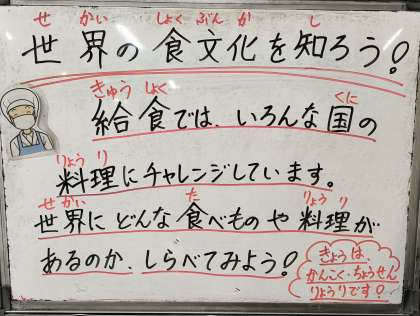 せ かい しょく ぶん か し
世界の食文化を知ろう!
きゅう しょく くに
給食では、いろんな国の
りょう り
料理にチャレンジしています。
せ かい た りょう り
世界にどんな食べものや料理が
あるのか、しらべてみよう!
きょうは、
かんこく・ちょうせん
りょうりです!